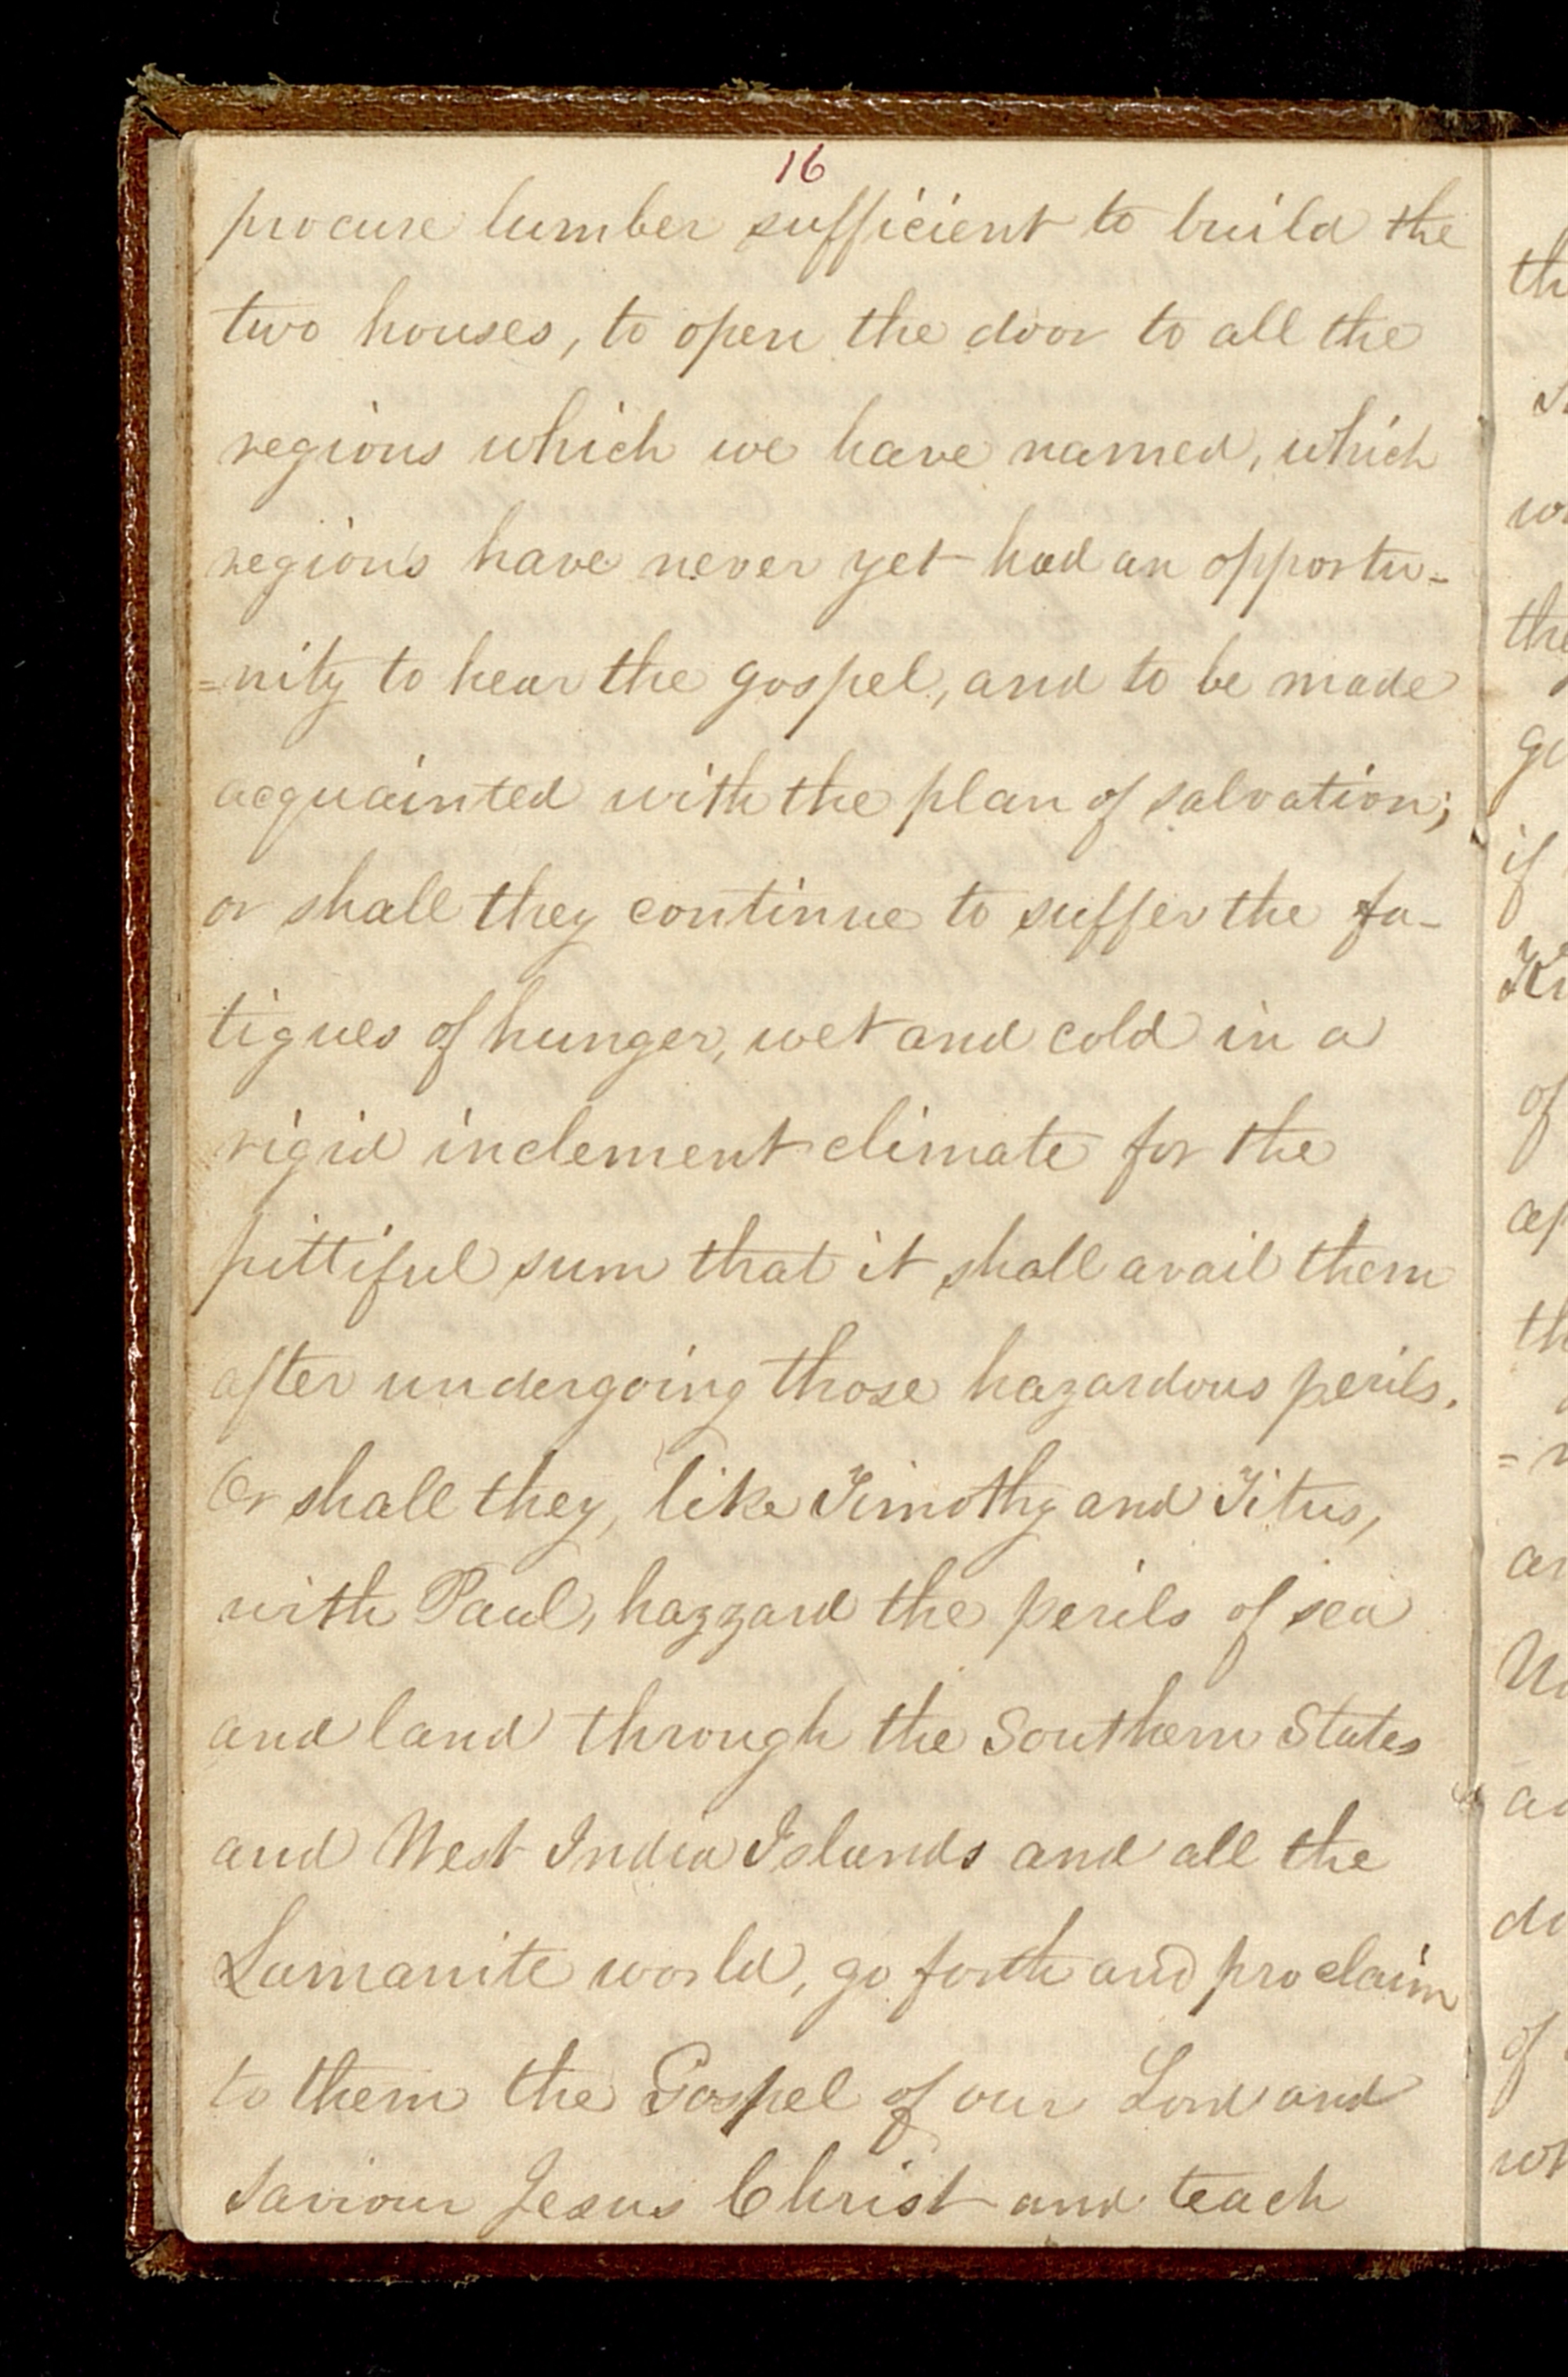 16
procure lumber sufficient to build the
two houses, to open the door to all the
regions which we have named, which
regions have never yet had an opportu-
=nity to hear the gospel, and to be made
acquainted with the plan of salvation;
or shall they continue to suffer the fa-
tigues of hunger, wet and cold in a
rigid inclement climate for the
pittiful sum that it shall avail them
after undergoing those hazardous perils.
Or shall they, like Timothy and Titus,
with Paul, hazzard the perils of sea
and land through the Southern States
and West India Islands and all the
Lamanite world, go forth and proclaim
to them the Gospel of our Lord and
Saviour Jesus Christ and teach